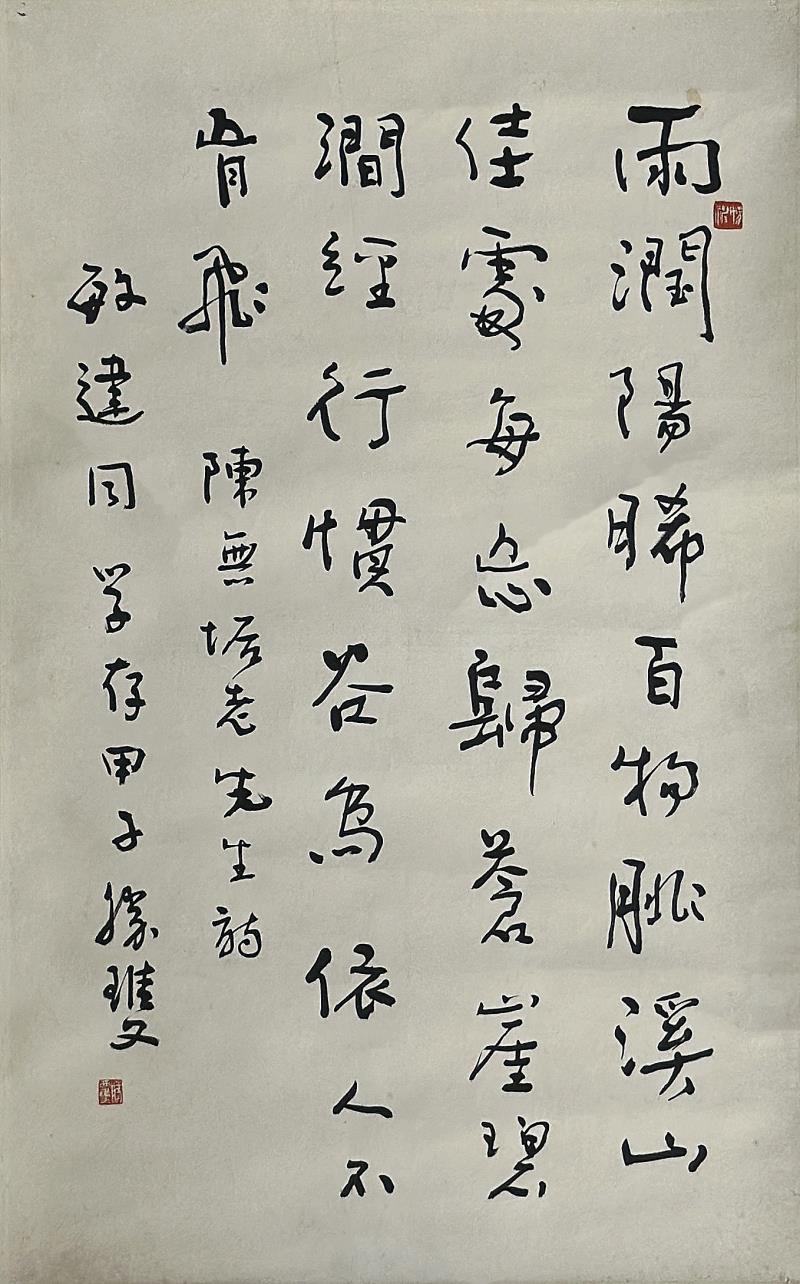 雨潤陽晞百物腓溪山
佳處每忘歸蒼崖碧
澗經行慣谷鳥依人不
肯飛 陳無垢老先生詩
敏建同学存甲子